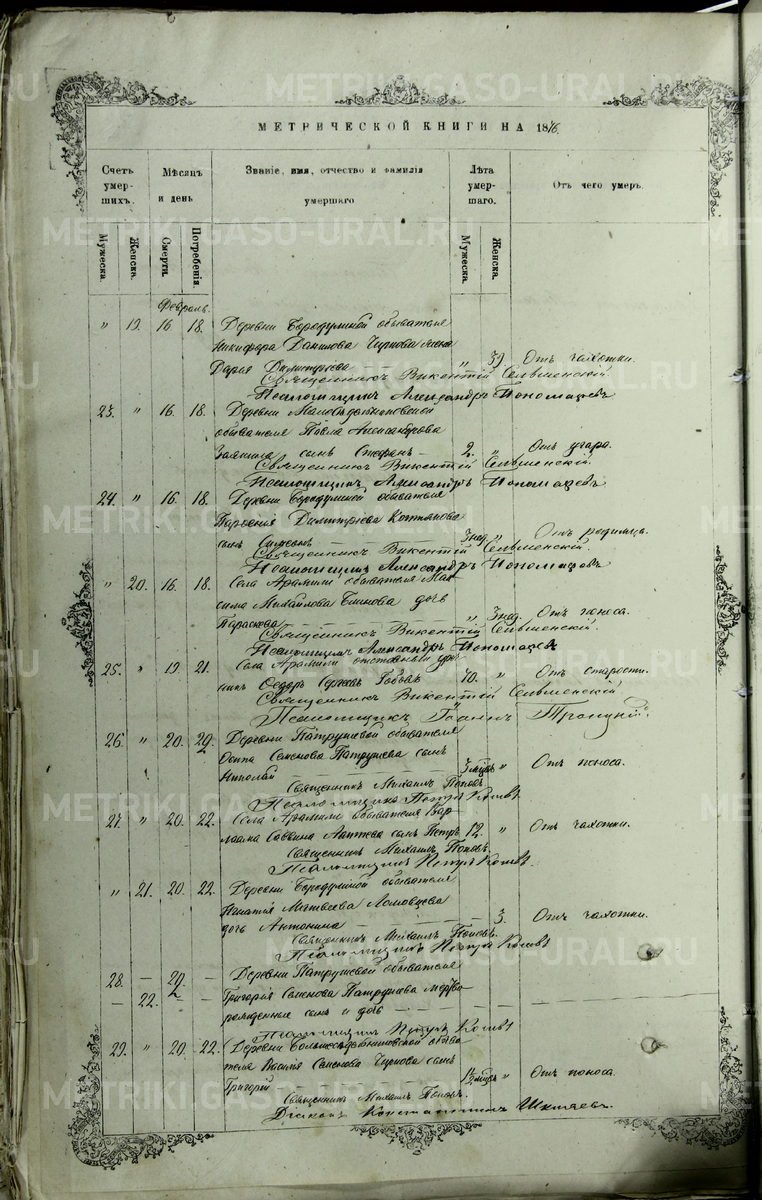 METRIKI.GASO-URAL.RU
МЕТРИЧЕСКОЙ КНИГИ НА 1876.
Счетъ умер-шихъ. Мѣсяцъ и день Званіе, имя, отчество и фамилія умершаго Лѣта умер-шаго. Отъ чего умеръ.
Мужеска. Женска. Смерти. Погребенія. Мужеска. Женска.
Февраль.
" 19. 16 18. Деревни Бородулиной обывателя
Никифора Данилова Чиркова жена
Дарья Димитріева " 39 Отъ чахотки.
Священникъ Викентій Сельменскій
Псаломщикъ Александръ Пономаревъ
23. " 16. 18. Деревни
обывателя Павла Александрова
сынъ Стефанъ 2. " Отъ угара.
Священникъ Викентій Сельменскій.
Псаломщикъ Александръ Пономаревъ
24. " 16. 18. Деревни Бородулиной обывателя
Парѳенія Димитріева
сынъ Симеонъ 3 нед. " Отъ родимца.
Священникъ Викентій Сельменскій.
Псаломщикъ Александръ Пономаревъ
" 20. 16. 18. Села Арамили обывателя Мак-
сима Михайлова дочь
Параскева " 3 нед. Отъ поноса.
Священникъ Викентій Сельменскій.
Псаломщикъ Александръ Пономаревъ
25. " 19. 21. Села Арамили отставной
Ѳедоръ Сергѣевъ 70. " Отъ старости.
Священникъ Викентій Сельменскій
Псаломщикъ Іоаннъ Троицкій.
26. " 20. 22. Деревни Патрушевой обывателя
Осипа Семенова Патрушева сынъ
Николай 3 мѣс. " Отъ поноса.
Священникъ Михаилъ Поповъ.
Псаломщикъ Петръ
27. " 20. 22. Села Арамили обывателя Вар-
лаама Саввина сынъ Петръ 12. " Отъ чахотки.
Священникъ Михаилъ Поповъ.
Псаломщикъ Петръ
" 21. 20. 22. Деревни Бородулиной обывателя
Игнатія Матвеева
дочь Антонина 3. Отъ чахотки.
Священникъ Михаилъ Поповъ.
Псаломщикъ Петръ
28. — 22. — Деревни Патрушевой обывателя
— 22. Григорія Семенова Патрушева мертво-
рожденные сынъ и дочь
Псаломщикъ Петръ
29. " 20. 22. Деревни обыва-
теля Василія Семенова Чиркова сынъ
Григорій 1½ мѣс. " Отъ поноса.
Священникъ Михаилъ Поповъ.
Діаконъ Константинъ